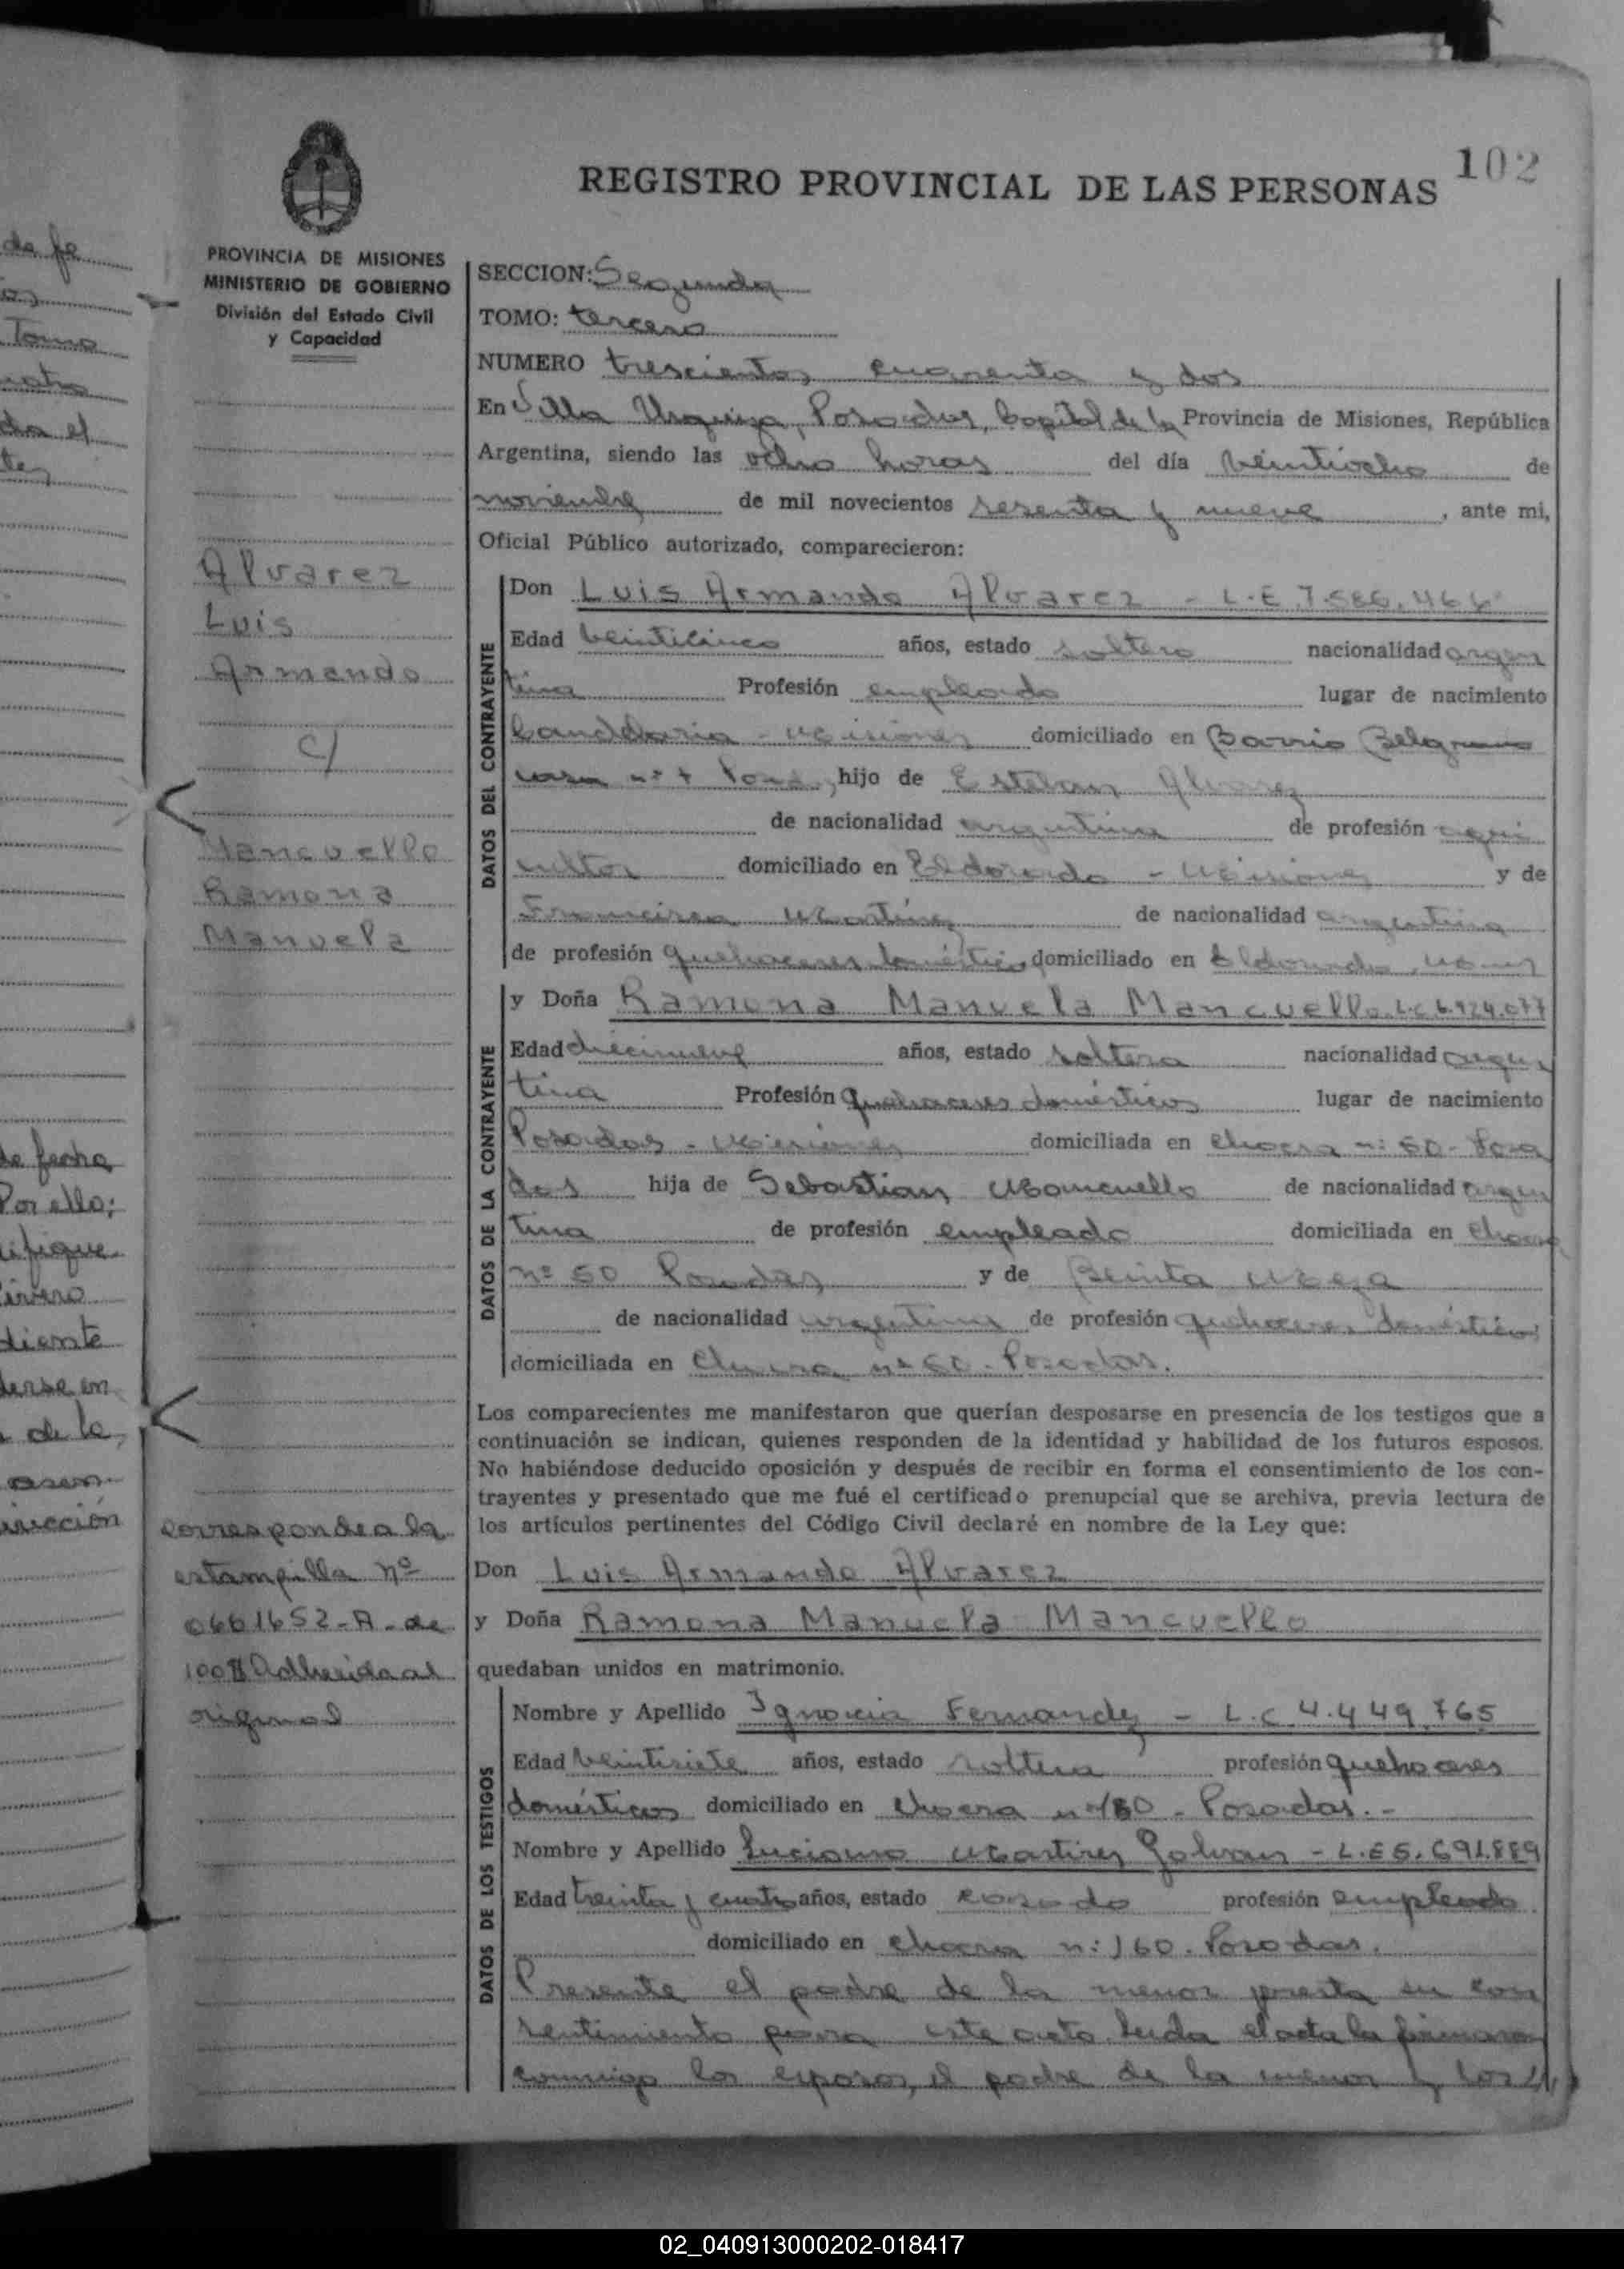 102
REGISTRO PROVINCIAL DE LAS PERSONAS
PROVINCIA DE MISIONES
MINISTERIO DE GOBIERNO
División del Estado Civil
y Capacidad
Alvarez
Luis
Armando
c/
Mancuello
Ramona
Manuela
corresponde a la
estampilla nº
0661652-A- de
100 $ Adherida al
original
SECCION: Segunda
TOMO: tercero
NUMERO trescientos cuarenta y dos
En Villa Urquiza, Posadas, Capital de la Provincia de Misiones, República
Argentina, siendo las ocho horas del día veintiocho de
noviembre de mil novecientos sesenta y nueve, ante mi,
Oficial Público autorizado, comparecieron:
DATOS DEL CONTRAYENTE
Don Luis Armando Alvarez - L.E. 7.586.466
Edad veinticinco años, estado soltero nacionalidad argen
tina Profesión empleado lugar de nacimiento
Candelaria - Misiones domiciliado en Barrio Belgrano
casa nº hijo de Esteban Alvarez
de nacionalidad argentina de profesión agri
cultor domiciliado en Eldorado - Misiones y de
Francisca Martínez de nacionalidad argentina
de profesión quehaceres domésticos domiciliado en Eldorado,
DATOS DE LA CONTRAYENTE
y Doña Ramona Manuela Mancuello. L.C 6.124.077
Edad diecinueve años, estado soltera nacionalidad argen
tina Profesión Quehaceres domésticos lugar de nacimiento
Posadas - Misiones domiciliada en chacra nº 60 - Posa
das hija de Sebastian Mancuello de nacionalidad argen
tina de profesión empleado domiciliada en chacra
nº 60 Posadas y de Meza
de nacionalidad argentina de profesión quehaceres domésticos
domiciliada en Chacra nº 60 - Posadas.
Los comparecientes me manifestaron que querían desposarse en presencia de los testigos que a
continuación se indican, quienes responden de la identidad y habilidad de los futuros esposos.
No habiéndose deducido oposición y después de recibir en forma el consentimiento de los con-
trayentes y presentado que me fué el certificado prenupcial que se archiva, previa lectura de
los artículos pertinentes del Código Civil declaré en nombre de la Ley que:
Don Luis Armando Alvarez
y Doña Ramona Manuela Mancuello
quedaban unidos en matrimonio.
DATOS DE LOS TESTIGOS
Nombre y Apellido Ignacia Fernandez - L.C. 4.449.765
Edad veintisiete años, estado soltera profesión quehaceres
domésticos domiciliado en chacra nº 160 - Posadas. -
Nombre y Apellido Luciano Martires Galvan - L.E 5.691.889
Edad treinta y cuatro años, estado casado profesión empleado
domiciliado en chacra nº 160. Posadas.
Presente el padre de la menor presta su con
sentimiento para este acto. Leida el acta la firmaron
conmigo los esposos, el padre de la menor y los
de fe
Tomo
da el
de fecha
Por ello;
ifique
diente
derse en
de la
02_040913000202-018417